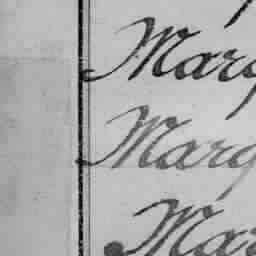 Marg
Marg
Mar